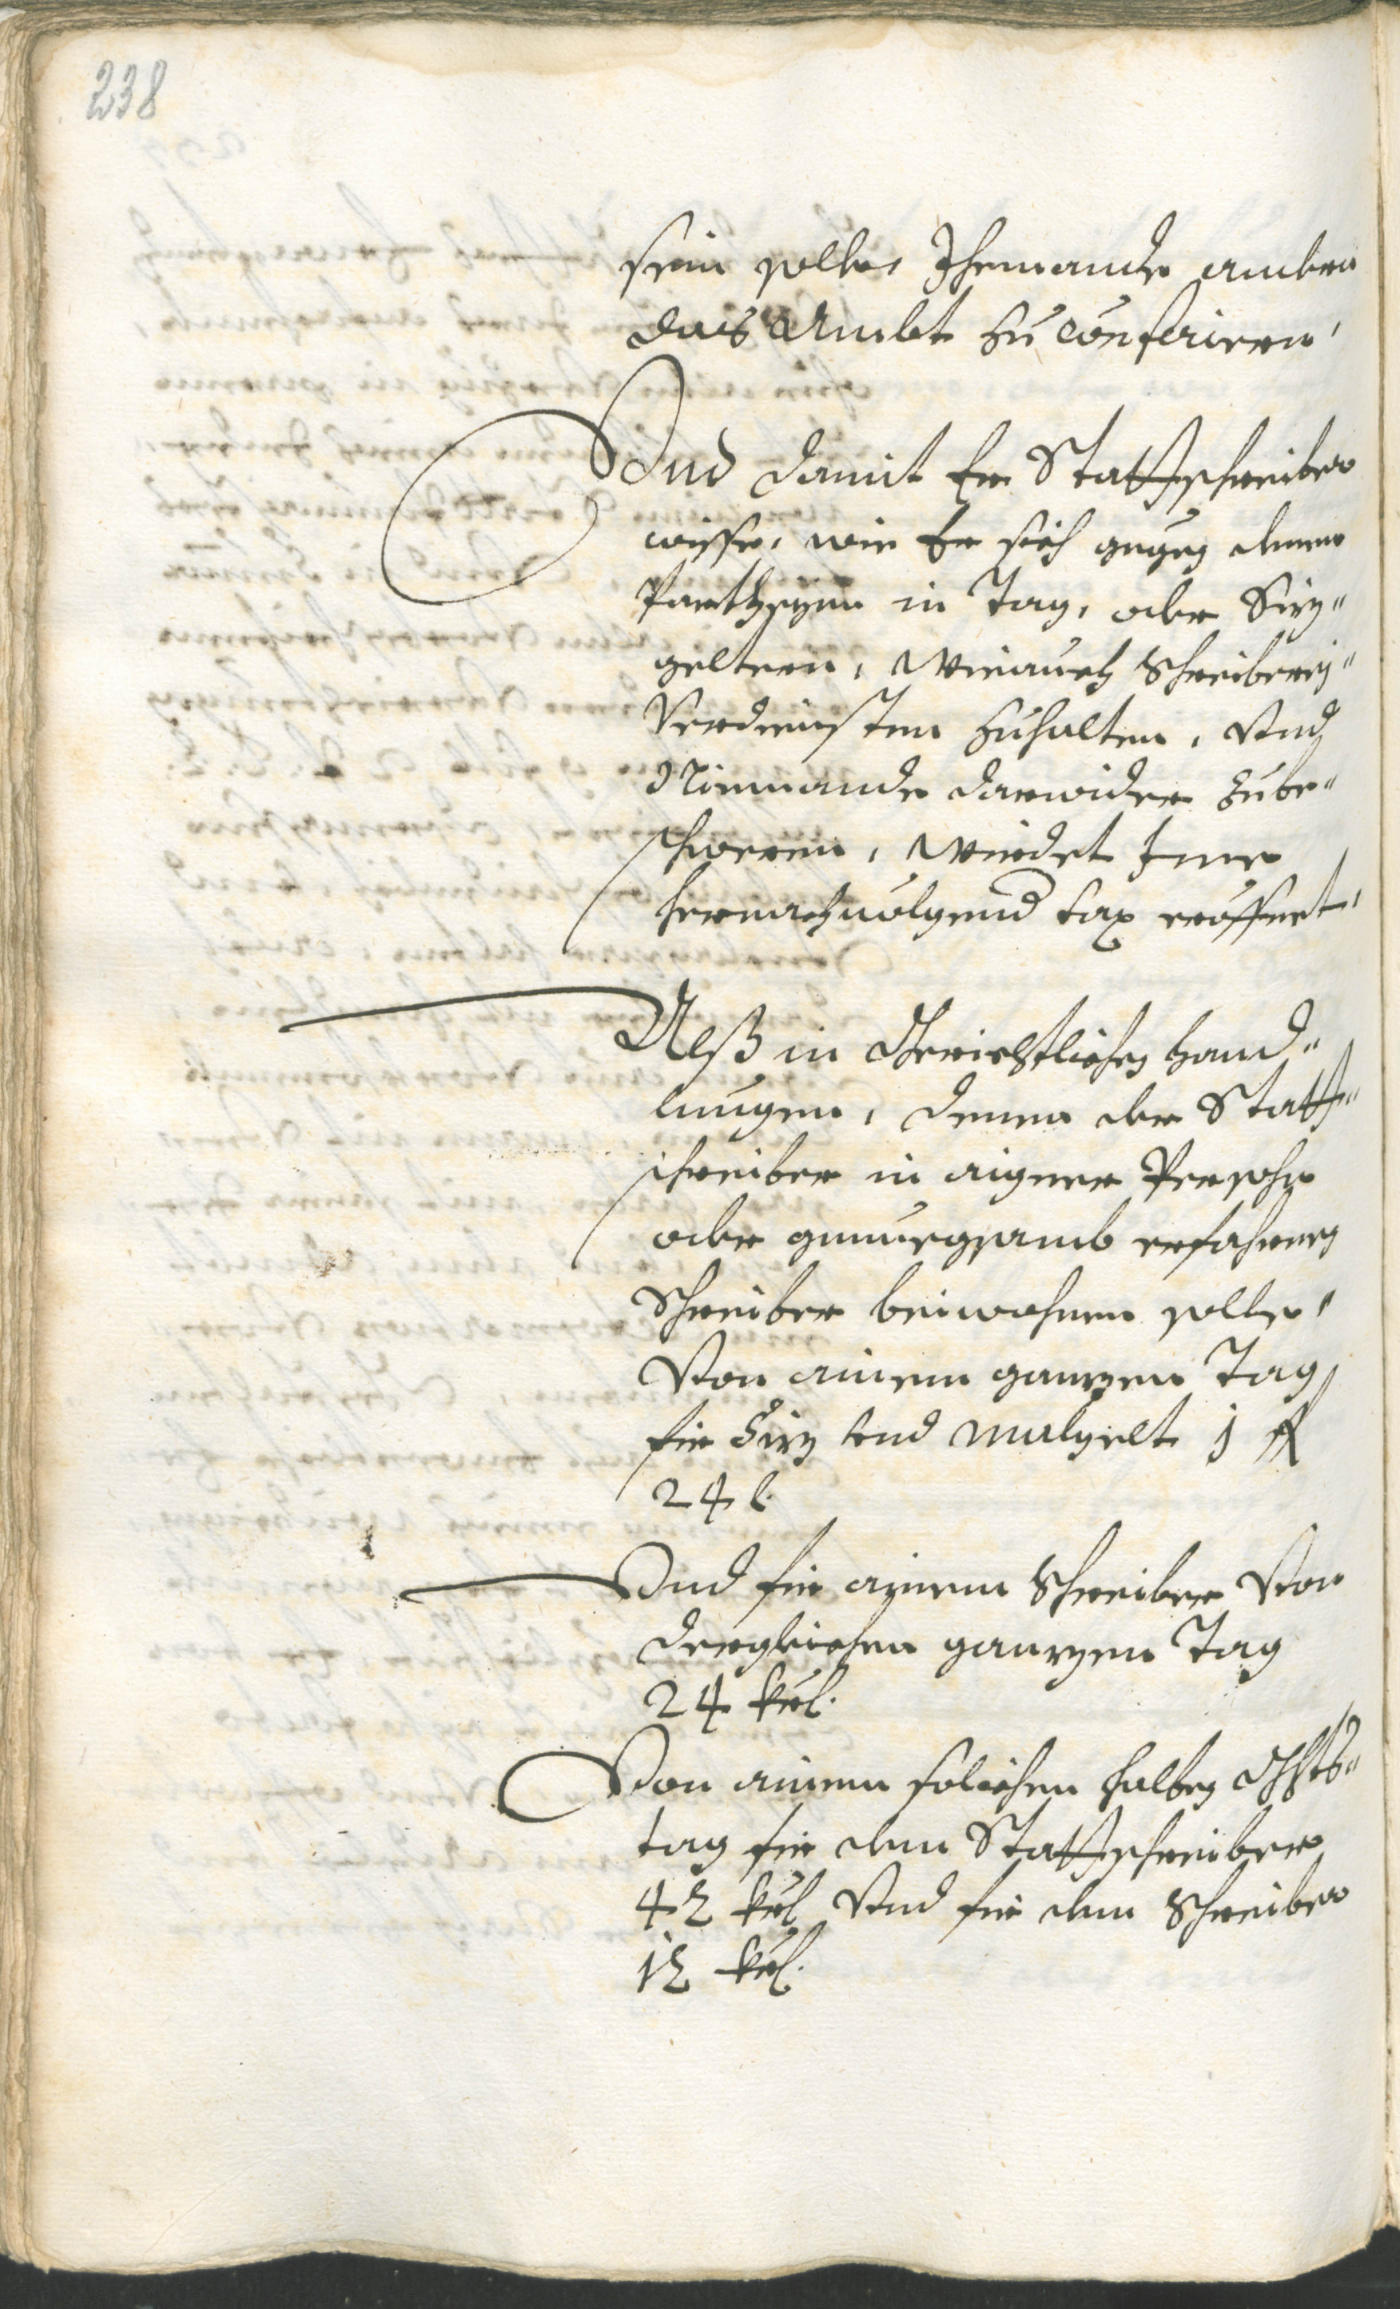 238
sein solle, Jhemande andern
das Ambt zu conferieren,
Vnd damit Er Stattschreiber
wisse, wie Er sich gegen denen
Partheyen in Tag, oder Siz„
geltern, wieauch Schreiberej„
Verdiensten zuhalten, Vnd
Niemande darwider zube„
schweren, wirdet Jme
hernachuolgend tax eröffnet,
Alß in Gerichtlichen hand„
lungen, denen der Statt„
schreiber in aigner Persohn
oder genuegsamb erfahrnen
Schreiber beiwohnen solle,
Von ainem ganzen Tag
fir Siz vnd malgelt j fl
24 k.
Vnd fir ainem Schreiber Von
dergleichen ganzen Tag
24 kr.
Von ainem solichen halben Ghts„
tag fir dem Stattschreiber
42 kr Vnd fir dem Schreiber
12 kr.